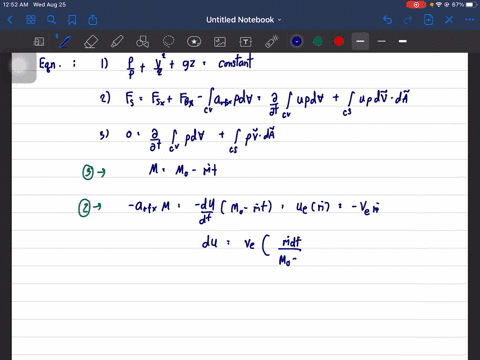 12:52 AM Wed Aug 25
67%
Untitled Notebook
Eqn. : 1) P/ρ + V²/2 + gz = constant
2) Fs = Fsx + FBx - ∫cv arfx ρd∀ = ∂/∂t ∫cv uρd∀ + ∫cs uρdV⃗·dA⃗
3) 0 = ∂/∂t ∫cv ρd∀ + ∫cs ρv⃗·dA⃗
③→ M = M₀ - ṁt
②→ -arfx M = -dU/dt (M₀ - ṁt) = ue (ṁ) = -Ve ṁ
dU = Ve ( ṁdt / M₀ -